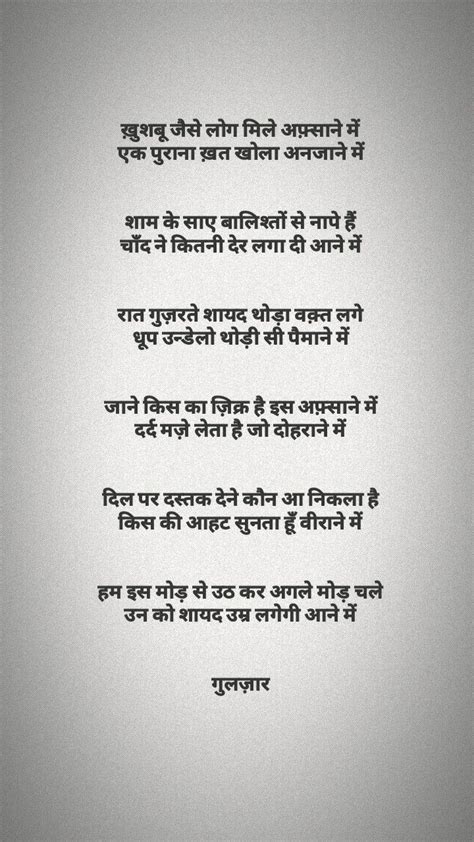 ख़ुशबू जैसे लोग मिले अफ़्साने में
एक पुराना ख़त खोला अनजाने में
शाम के साए बालिश्तों से नापे हैं
चाँद ने कितनी देर लगा दी आने में
रात गुज़रते शायद थोड़ा वक़्त लगे
धूप उन्डेलो थोड़ी सी पैमाने में
जाने किस का ज़िक्र है इस अफ़्साने में
दर्द मज़े लेता है जो दोहराने में
दिल पर दस्तक देने कौन आ निकला है
किस की आहट सुनता हूँ वीराने में
हम इस मोड़ से उठ कर अगले मोड़ चले
उन को शायद उम्र लगेगी आने में
गुलज़ार